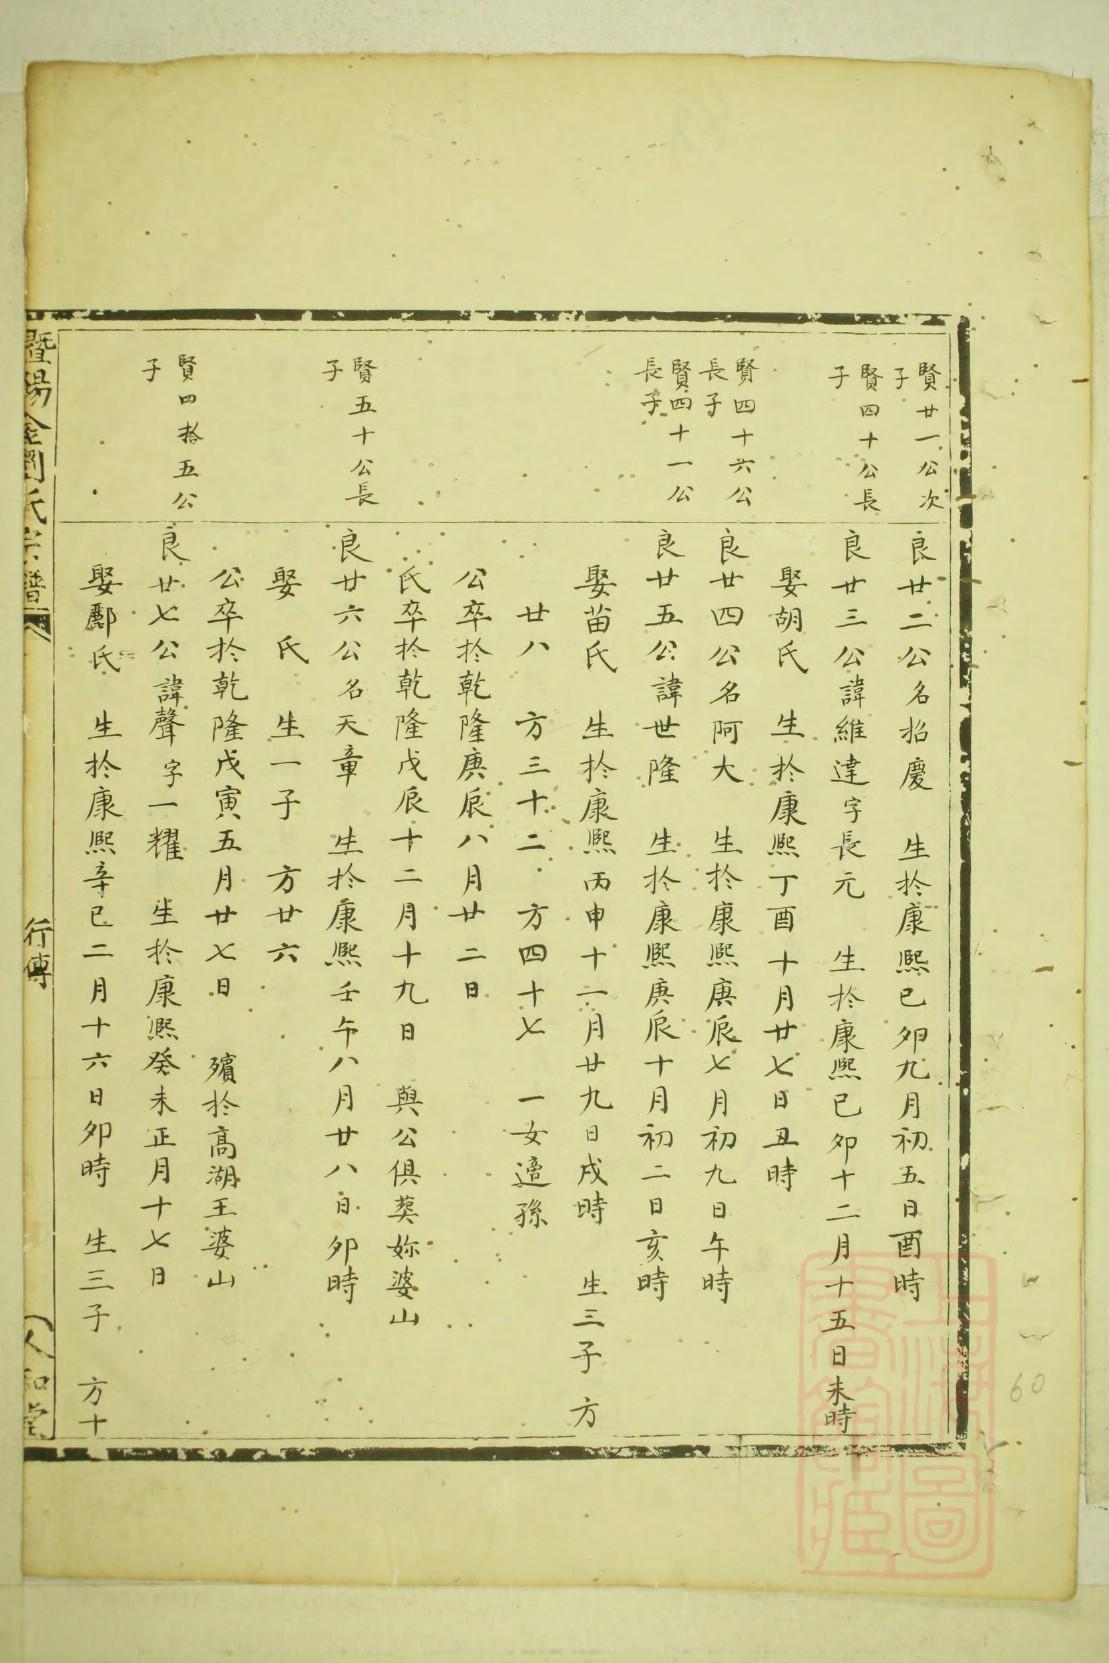 賢廿一公次
子
良廿二公名招慶 生於康熙己卯九月初五日酉時
賢四十公長
子
良廿三公諱維達字長元 生於康熙己卯十二月十五日未時
娶胡氏 生於康熙丁酉十月廿七日丑時
賢四十六公
長子
良廿四公名阿大 生於康熙庚辰七月初九日午時
賢四十一公
長子
良廿五公諱世隆 生於康熙庚辰十月初二日亥時
娶苗氏 生於康熙丙申十一月廿九日戌時 生三子 方
廿八 方三十二 方四十七 一女適孫
公卒於乾隆庚辰八月廿二日
氏卒於乾隆戊辰十二月十九日 與公俱葬妳婆山
賢五十公長
子
良廿六公名天章 生於康熙壬午八月廿八日卯時
娶 氏 生一子 方廿六
公卒於乾隆戊寅五月廿七日 殯於高湖王婆山
賢四拾五公
子
良廿七公諱聲字一耀 生於康熙癸未正月十七日
娶酈氏 生於康熙辛巳二月十六日卯時 生三子 方十
暨陽金劉氏宗譜
行傳
人和堂
上海圖
書館藏
60